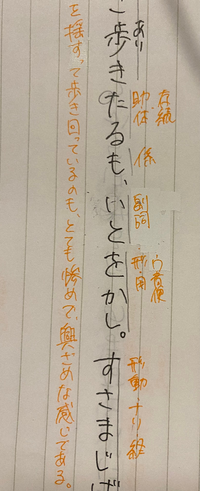 存続 ウ音便
あり 助体 係 副詞 形用 形動ナリ終
歩きたるも、いとをかし。すさまじげ
を揺すって歩き回っているのも、とても惨めで、興ざめな感じである。